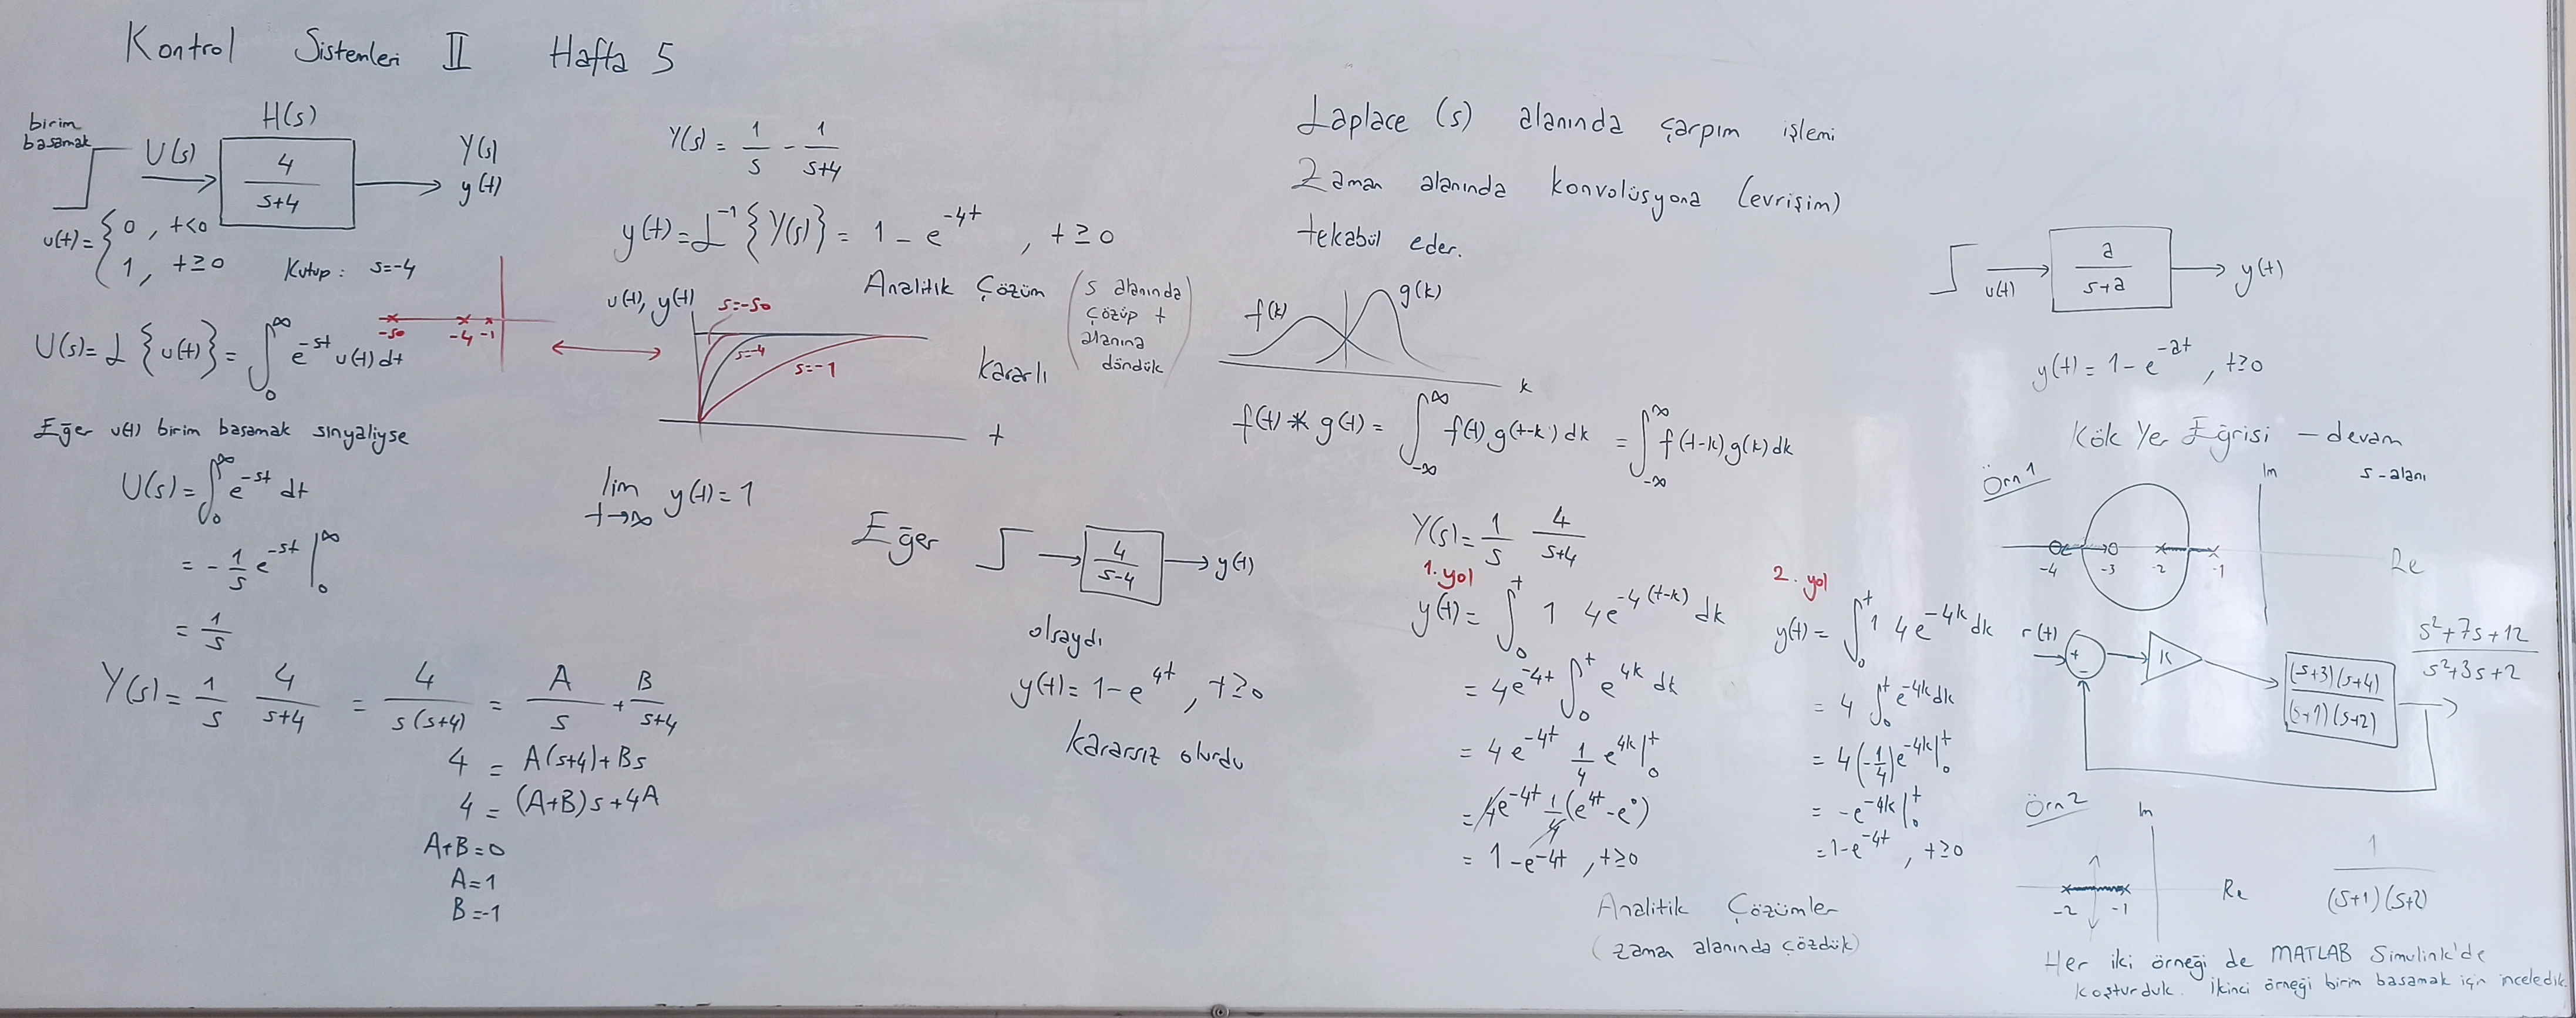 Kontrol Sistemleri II Hafta 5
birim
basamak
H(s)
U(s)
4/(s+4)
Y(s)
y(t)
u(t) = { 0 , t<0
1 , t≥0
Kutup : s=-4
-50 -4 -1
U(s) = L {u(t)} = ∫₀^∞ e^{-st} u(t) dt
Eğer u(t) birim basamak sinyaliyse
U(s) = ∫₀^∞ e^{-st} dt
= - 1/s e^{-st} |₀^∞
= 1/s
Y(s) = 1/s 4/(s+4) = 4/(s(s+4)) = A/s + B/(s+4)
4 = A(s+4)+Bs
4 = (A+B)s+4A
A+B=0
A=1
B=-1
Y(s) = 1/s - 1/(s+4)
y(t) = L^{-1} {Y(s)} = 1 - e^{-4t} , t ≥ 0
Analitik Çözüm (s alanında
çözüp t
alanına
döndük)
u(t), y(t)
s=-50
s=-4
s=-1
t
kararlı
lim t→∞ y(t) = 1
Eğer
4/(s-4)
y(t)
olsaydı
y(t) = 1-e^{4t} , t≥0
kararsız olurdu
Laplace (s) alanında çarpım işlemi
Zaman alanında konvolüsyona (evrişim)
tekabül eder.
f(k) g(k)
k
f(t) * g(t) = ∫_{-∞}^∞ f(t) g(t-k) dk = ∫_{-∞}^∞ f(t-k) g(k) dk
Y(s) = 1/s 4/(s+4)
1. yol
y(t) = ∫₀^t 1 4e^{-4(t-k)} dk
= 4e^{-4t} ∫₀^t e^{4k} dk
= 4e^{-4t} 1/4 e^{4k} |₀^t
= 4e^{-4t} 1/4 (e^{4t} - e^0)
= 1-e^{-4t} , t≥0
2. yol
y(t) = ∫₀^t 1 4e^{-4k} dk
= 4 ∫₀^t e^{-4k} dk
= 4(-1/4) e^{-4k} |₀^t
= -e^{-4k} |₀^t
= 1-e^{-4t} , t≥0
Analitik Çözümler
(zaman alanında çözdük)
u(t)
a/(s+a)
y(t)
y(t) = 1 - e^{-at} , t≥0
Kök Yer Eğrisi - devam
Örn1
Im
s-alanı
-4 -3 -2 -1
Re
r(t)
+
-
K
(s+3)(s+4)/((s+1)(s+2))
(s²+7s+12)/(s²+3s+2)
Örn2
Im
-2 -1
Re
1/((s+1)(s+2))
Her iki örneği de MATLAB Simulink'de
koşturduk. İkinci örneği birim basamak için inceledik.